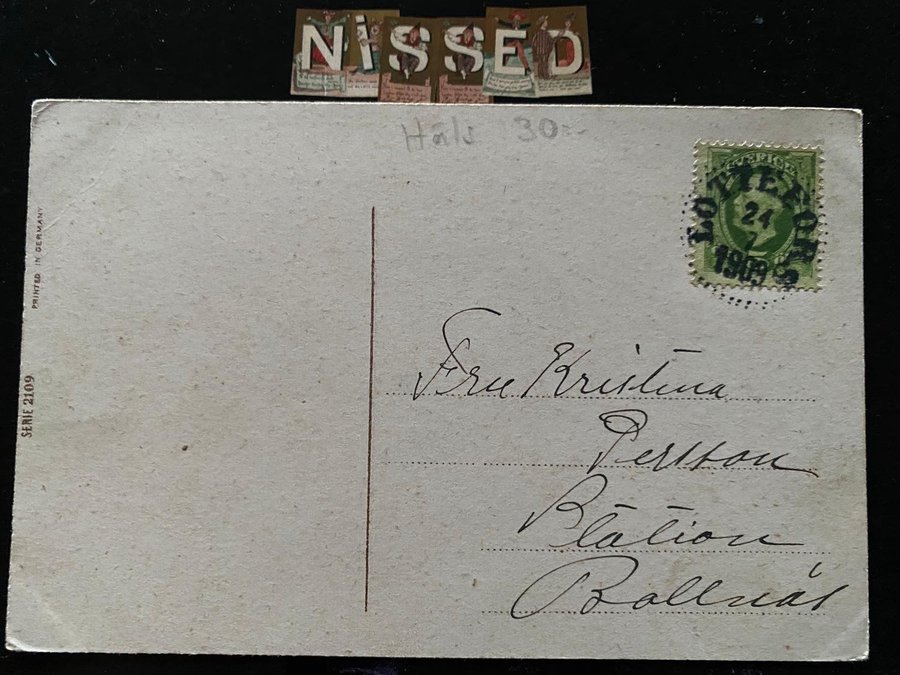 NiSSED
Häls 30:-
SVERIGE
LOTTEFORS
24
7
1909
PRINTED IN GERMANY
SERIE 2109
Fru Kristina
Persson
Station
Bollnäs